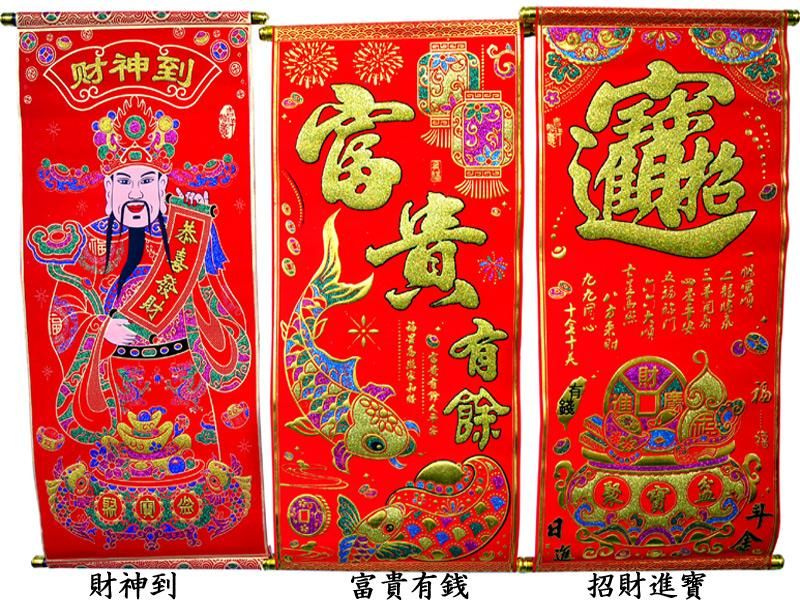 财神到
恭喜發財
聚寶盆
富貴有餘
招財進寶
一帆風順
二龍騰飛
四季平安
五福臨門
六六大順
七星高照
八方來財
九九同心
十全十美
福
有錢
財
進
廣
聚寶盆
日進
斗金
財神到
富貴有錢
招財進寶